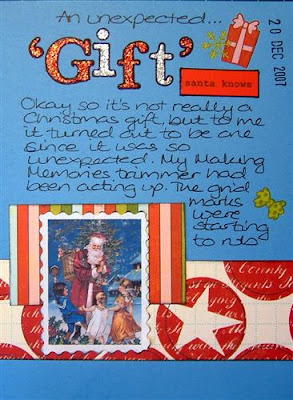 An unexpected...
'Gift'
20 DEC 2007
santa knows
Okay so it's not really a
Christmas gift, but to me
it turned out to be one
since it was so
unexpected. My Making
Memories trimmer had
been acting up. The grid
marks
were
starting
to rub